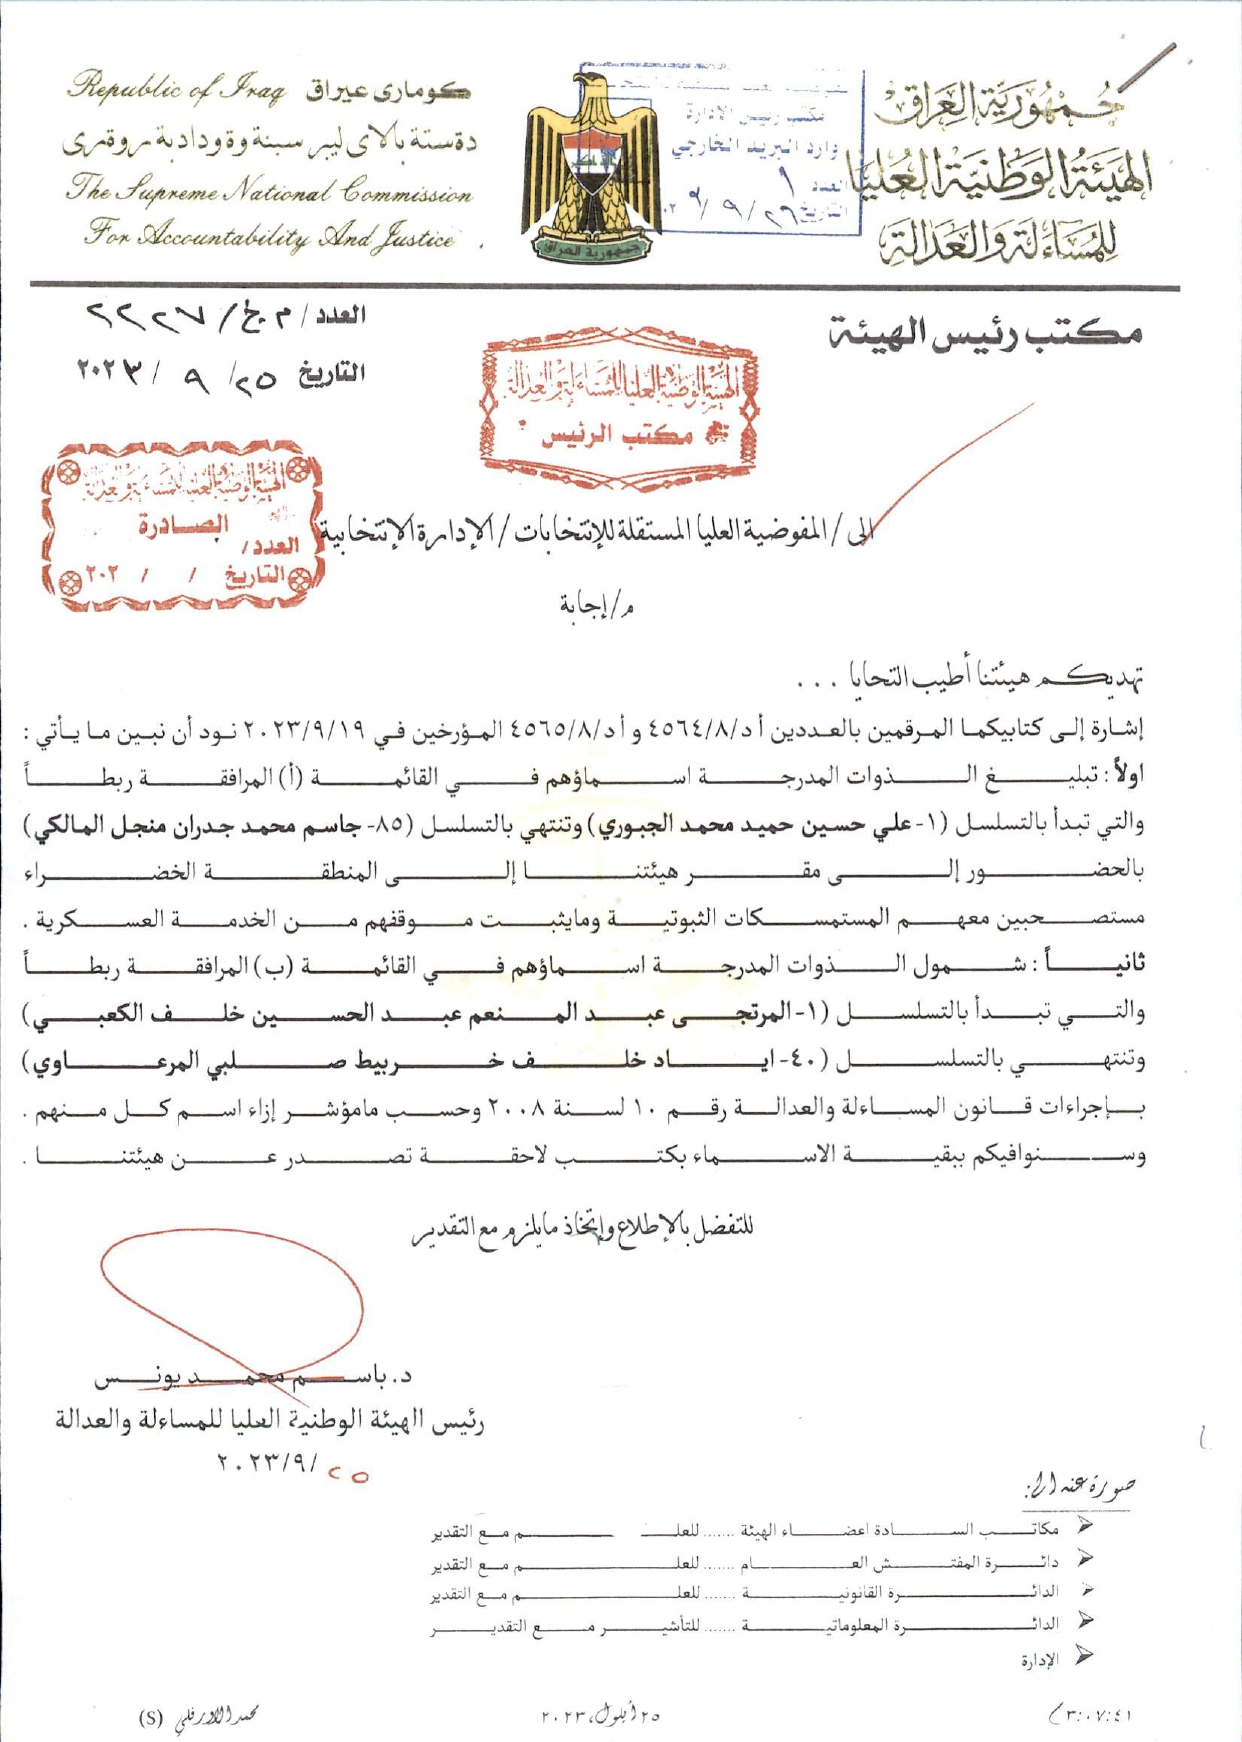 جمهورية العراق
الهيئة الوطنية العليا
للمساءلة والعدالة
Republic of Iraq كوماری عیراق
The Supreme National Commission
For Accountability And Justice
جمهورية العراق
مكتب رئيس الادارة
وارد البريد الخارجي
العدد ١
التاريخ ٢٦/٩/
مكتب رئيس الهيئة
العدد / م.خ/ ٢٢٢٧
التاريخ ٢٥/ ٩ / ٢٠٢٣
الهيئة الوطنية العليا للمساءلة والعدالة
مكتب الرئيس
الهيئة الوطنية العليا للمساءلة والعدالة
الصادرة
العدد/
التاريخ / / ٢٠٢
الى / المفوضية العليا المستقلة للإنتخابات / الإدارة الإنتخابية
م/إجابة
تهديكم هيئتنا أطيب التحايا ...
إشارة إلى كتابيكما المرقمين بالعددين أد/٤٥٦٤/٨ و أد/٤٥٦٥/٨ المؤرخين في ٢٠٢٣/٩/١٩ نود أن نبين ما يأتي :
اولاً : تبليغ الذوات المدرجة اسماؤهم في القائمة (أ) المرافقة ربطاً
والتي تبدأ بالتسلسل (١- علي حسين حميد محمد الجبوري) وتنتهي بالتسلسل (٨٥- جاسم محمد جدران منجل المالكي)
بالحضور إلى مقر هيئتنا إلى المنطقة الخضراء
مستصحبين معهم المستمسكات الثبوتية ومايثبت موقفهم من الخدمة العسكرية .
ثانياً : شمول الذوات المدرجة اسماؤهم في القائمة (ب) المرافقة ربطاً
والتي تبدأ بالتسلسل (١- المرتجى عبد المنعم عبد الحسين خلف الكعبي)
وتنتهي بالتسلسل (٤٠- اياد خلف خربيط صلبي المرعاوي)
بإجراءات قانون المساءلة والعدالة رقم ١٠ لسنة ٢٠٠٨ وحسب مامؤشر إزاء اسم كل منهم .
وسنوافيكم ببقية الاسماء بكتب لاحقة تصدر عن هيئتنا .
للتفضل بالإطلاع وإتخاذ مايلزم مع التقدير
د. باسم محمد يونس
رئيس الهيئة الوطنية العليا للمساءلة والعدالة
٢٠٢٣/٩/٢٥
صورة عنه الى:
مكاتب السادة اعضاء الهيئة ...... للعلم مع التقدير
دائرة المفتش العام ...... للعلم مع التقدير
الدائرة القانونية ...... للعلم مع التقدير
الدائرة المعلوماتية ...... للتأشير مع التقدير
الإدارة
٣:٠٧:٤١
٢٥ أيلول، ٢٠٢٣
(S)